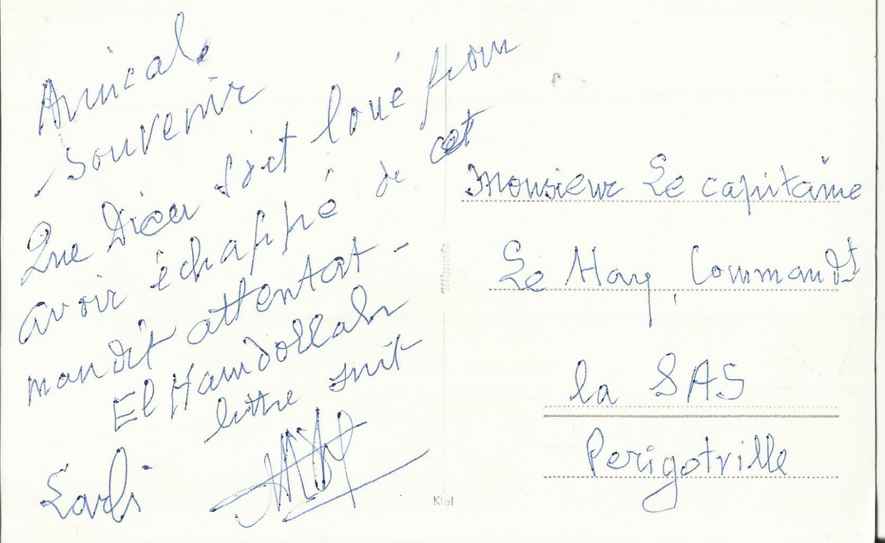 Amical
Souvenir
Que Dieu soit loué pour
avoir échappé de cet
maudit attentat -
El Hamdollah
lettre suit
Larbi
Monsieur Le capitaine
Le Hay, Commandt
la SAS
Perigotville